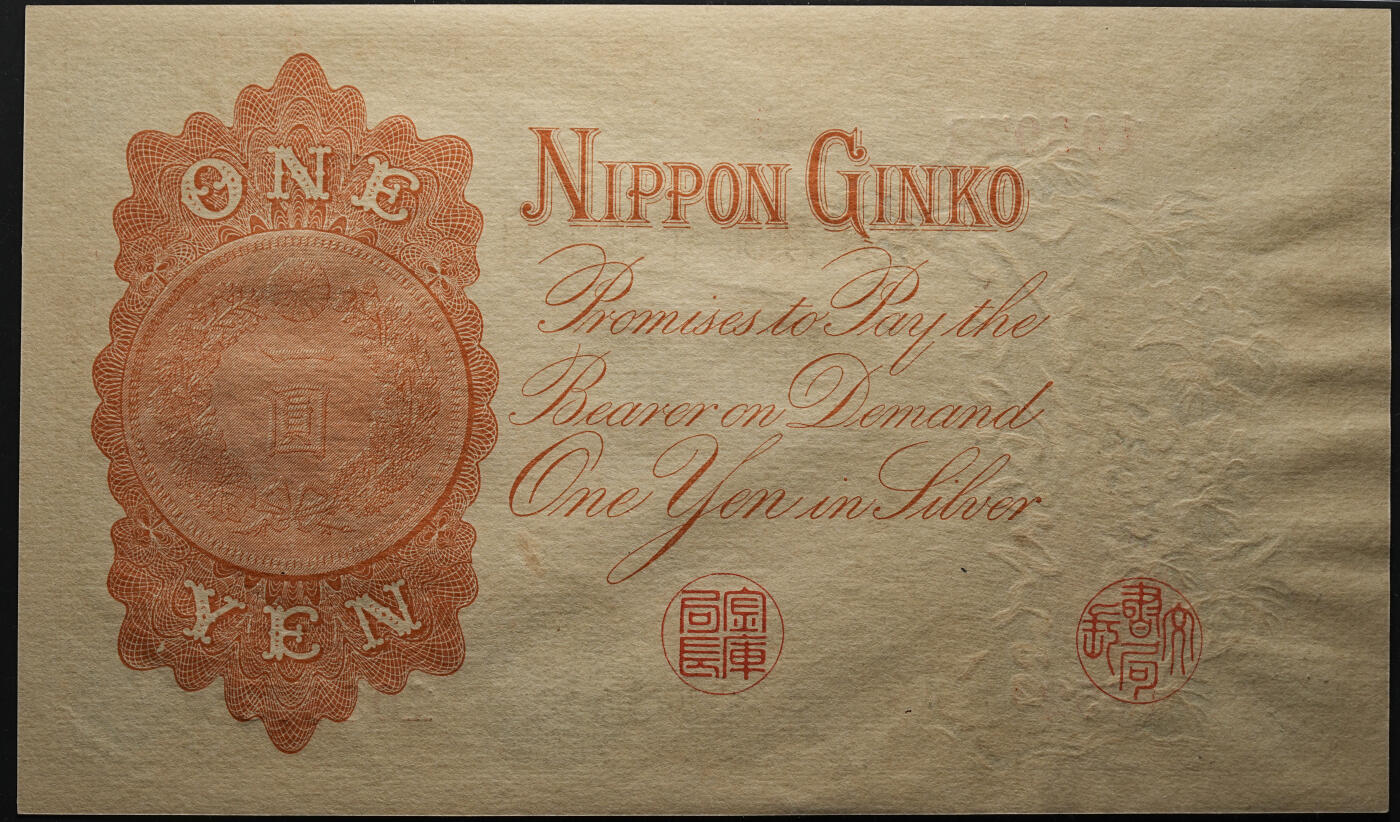 ONE
一
圓
YEN
NIPPON GINKO
Promises to Pay the
Bearer on Demand
One Yen in Silver
金庫
局長
文書局長